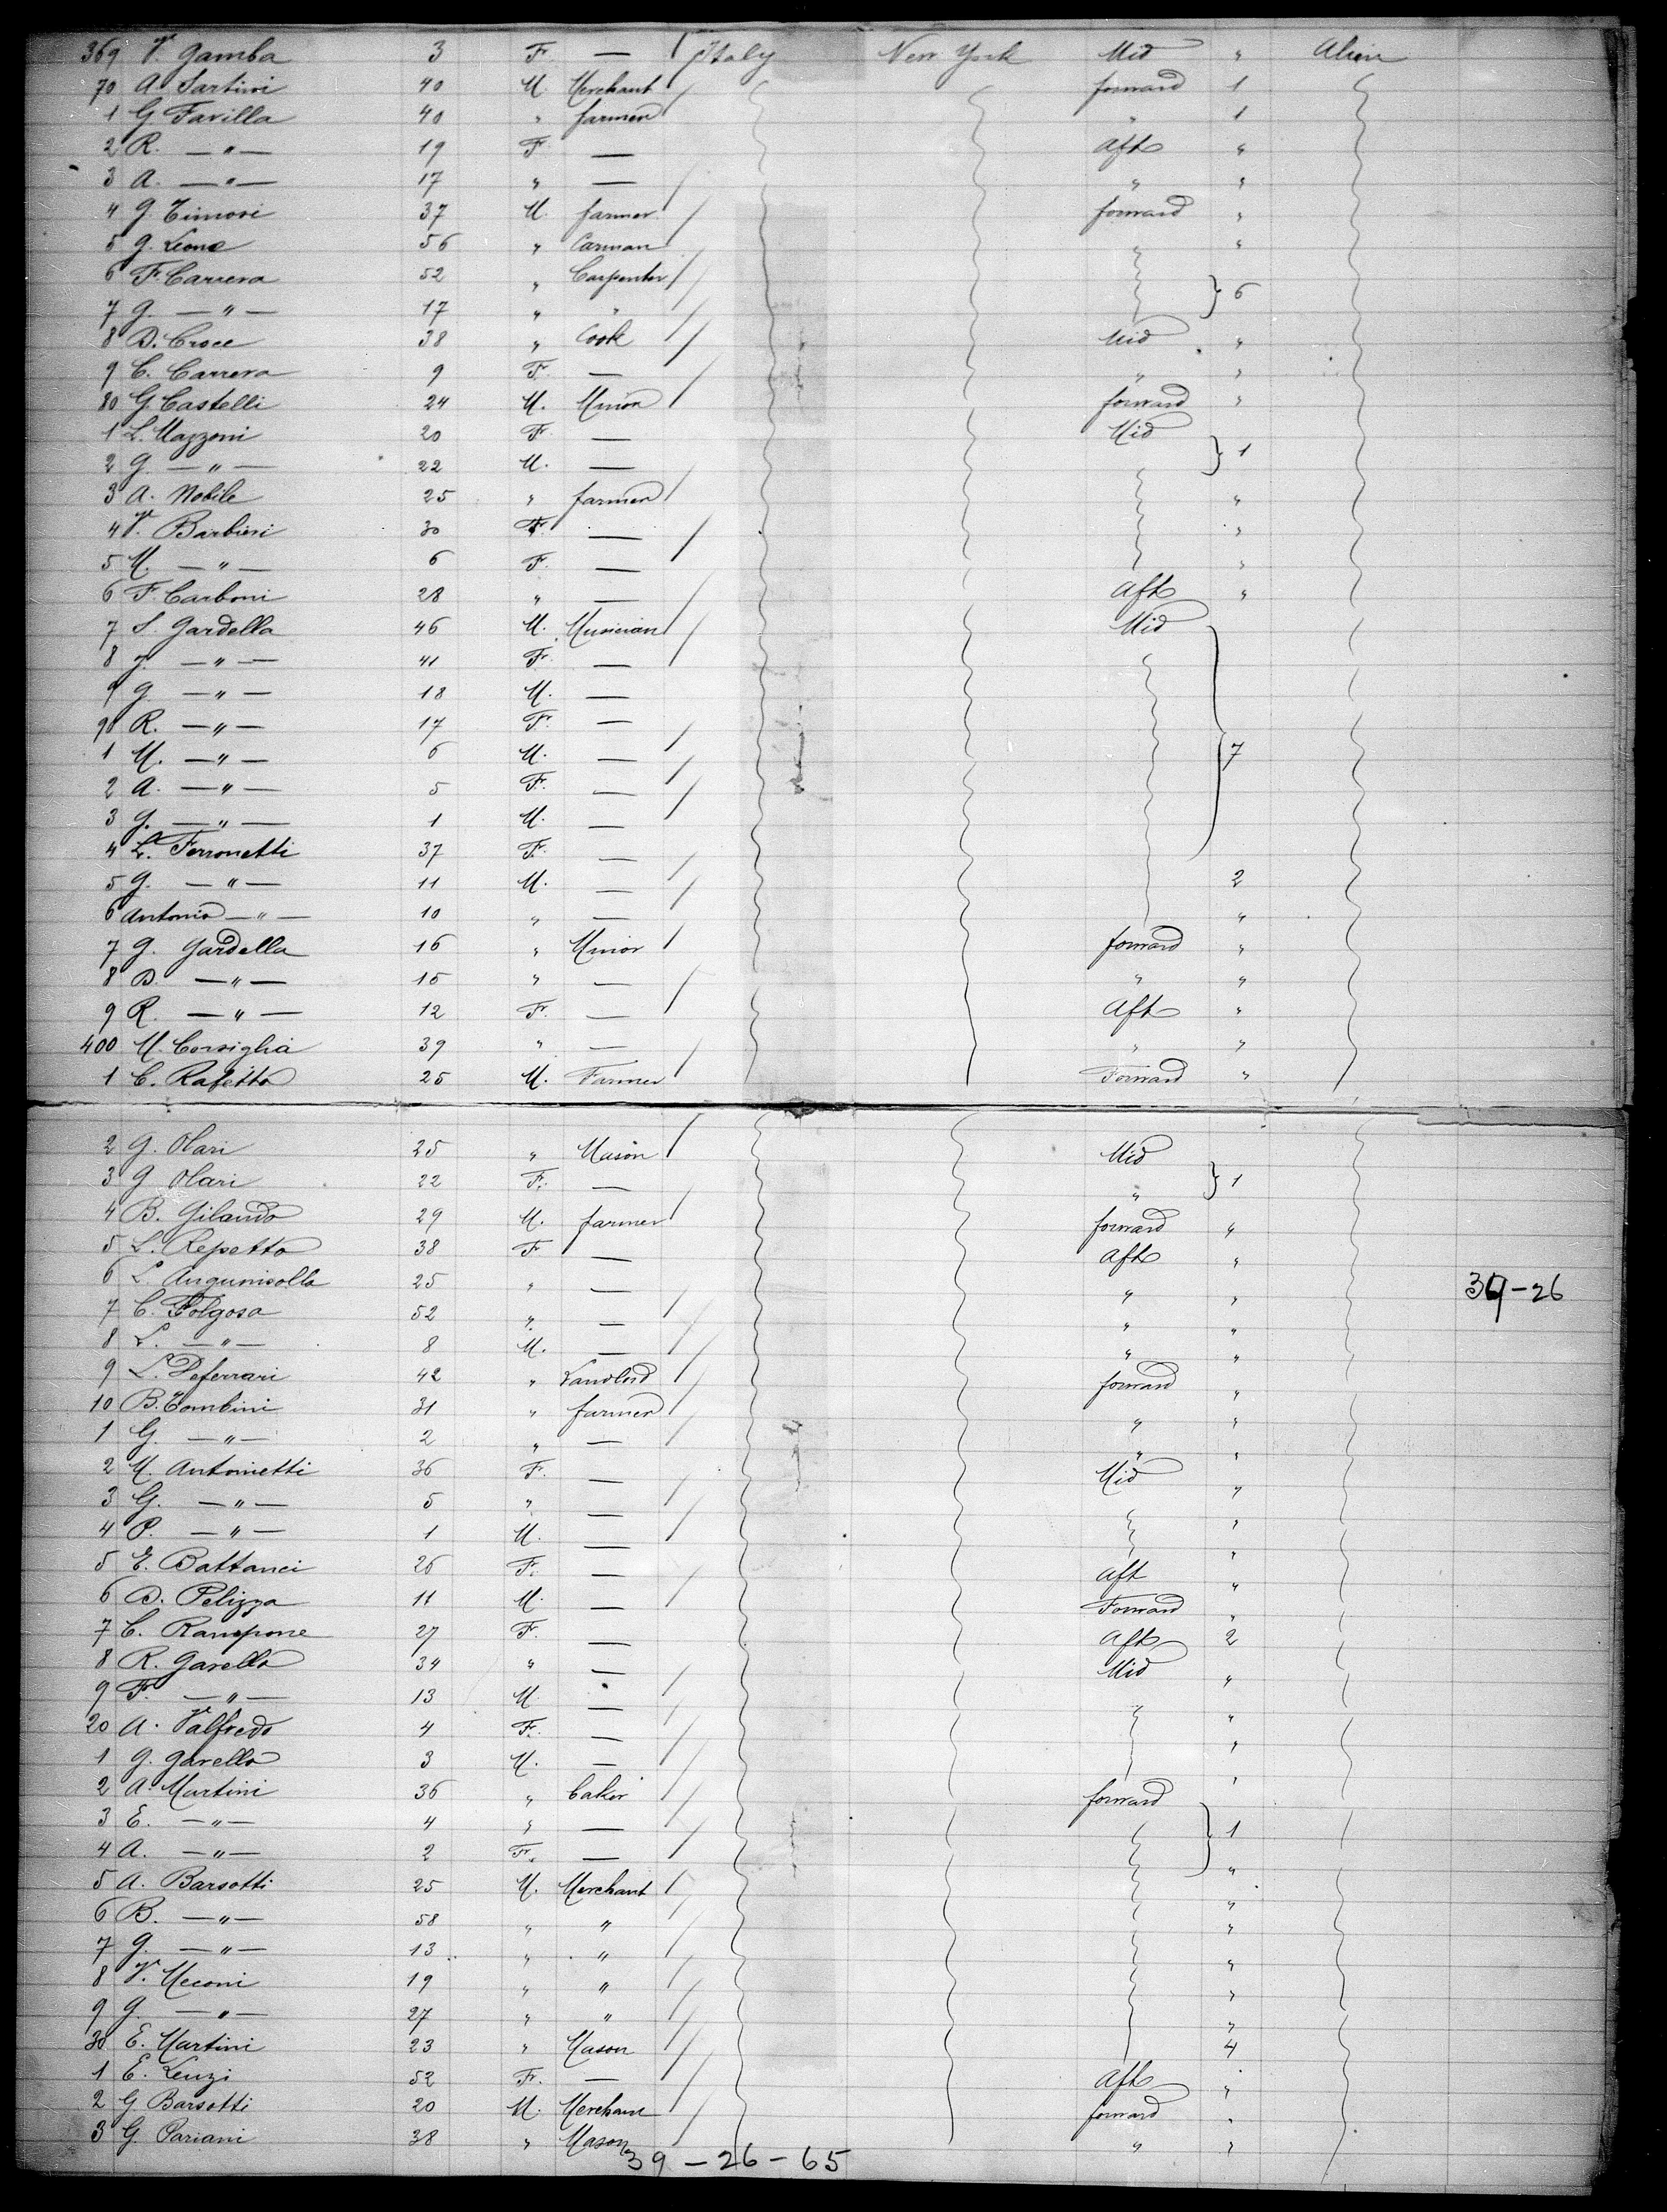 369 V. Gamba 3 F. — Italy New York Mid " Alien
70 A. Sartini 40 M. Merchant forward 1
1 G. Favilla 40 " farmer " 1
2 R. —"— 19 F — Aft "
3 A. —"— 17 " — " "
4 G. Timosi 37 M. farmer forward "
5 G. Leone 56 " Carman "
6 F. Carrera 52 " Carpenter
7 G. —"— 17 " " } 6
8 D. Croce 38 " Cook Mid "
9 C. Carrera 9 F. — " "
80 G. Castelli 24 M. Minor forward "
1 L. Mazzoni 20 F. — Mid
2 G. —"— 22 M. — } 1
3 A. Nobile 25 " farmer "
4 V. Barbieri 30 F. — "
5 M. —"— 6 F. — "
6 F. Carboni 28 " — Aft "
7 S. Gardella 46 M. Musician Mid
8 J. —"— 41 F. —
9 G. —"— 18 M. —
90 R. —"— 17 F. —
1 M. —"— 6 M. — } 7
2 A. —"— 5 F. —
3 G. —"— 1 M. —
4 L. Ferronetti 37 F. —
5 G. —"— 11 M. — 2
6 Antonio —"— 10 " — "
7 G. Gardella 16 " Minor forward "
8 D. —"— 15 " — " "
9 R. —"— 12 F. — Aft "
400 M. Corsiglia 39 " — " "
1 C. Rafetto 25 M. Farmer Forward "
2 G. Olari 25 " Mason Mid
3 G. Olari 22 F. — " } 1
4 B. Gilando 29 M. farmer forward "
5 L. Repetto 38 F — Aft "
6 L. Angunisolla 25 " — " "
39-26
7 C. Folgosa 52 " — " "
8 L. —"— 8 M. — " "
9 L. Deferrari 42 " Landlord forward "
10 B. Tombini 31 " farmer " "
1 G. —"— 2 " — " "
2 M. Antonietti 36 F. — Mid "
3 G. —"— 5 " — "
4 P. —"— 1 M. — "
5 E. Battanci 26 F. — Aft "
6 D. Pelizza 11 M. — Forward "
7 C. Rampone 27 F. — Aft 2
8 R. Garello 34 " — Mid "
9 F. —"— 13 M. — "
20 A. Valfredo 4 F. — "
1 G. Garello 3 M. — "
2 A. Martini 36 " baker forward
3 E. —"— 4 " — } 1
4 A. —"— 2 F. — "
5 A. Barsotti 25 M. Merchant "
6 B. —"— 58 " " "
7 G. —"— 13 " " "
8 V. Meconi 19 " " "
9 G. —"— 27 " " "
30 E. Martini 23 " Mason 4
1 E. Lenzi 52 F. — Aft "
2 G. Barsotti 20 M. Merchant forward "
3 G. Pariani 38 " Mason " "
39-26-65